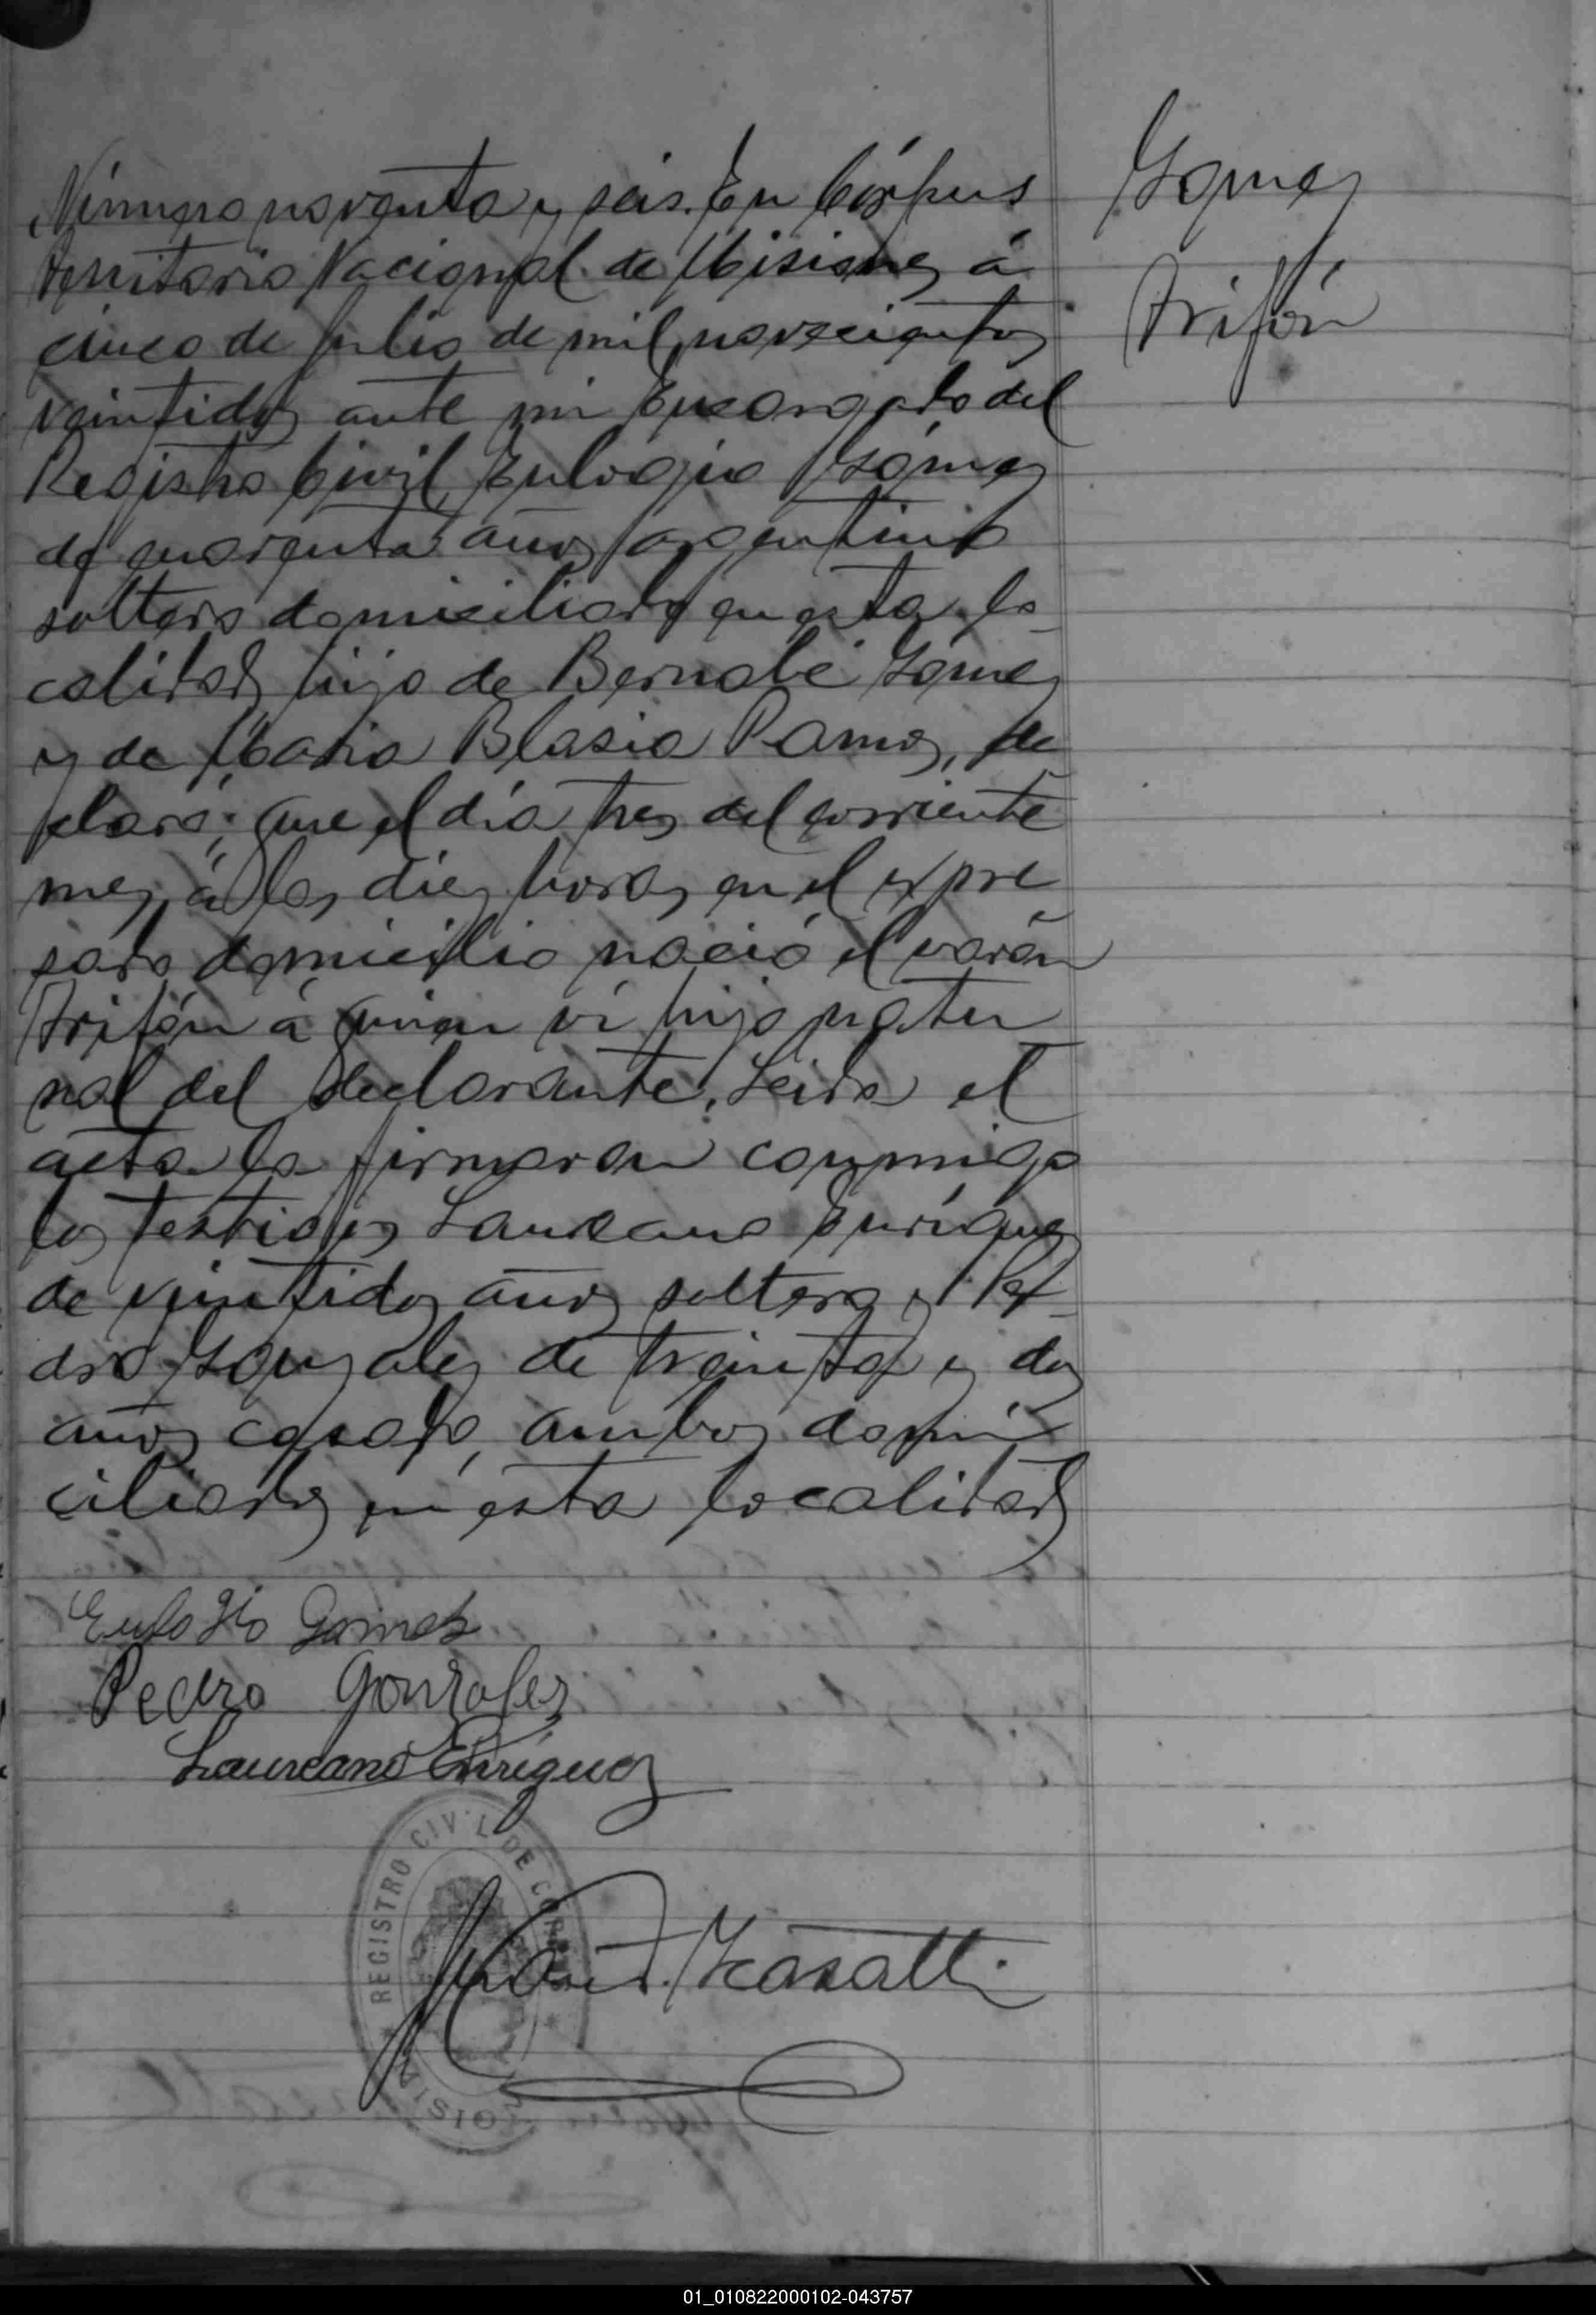 Gomez
Trifón
Número noventa y seis. En Córpus
Territorio Nacional de Misiones á
cinco de Julio de mil novecientos
veintidos ante mi Encargado del
Registro Civil, Eulogio Gómez
de cuarenta años argentino
soltero domiciliado en esta lo-
calidad, hijo de Bernabé Gomez
y de Maria Blasia Ramos, de-
claró; que el día tres del corriente
mes á las diez horas en el expre
sado domicilio nació el varón
Trifón á quien vi hijo natu
ral del declarante. Leida el
acta la firmaron conmigo
los testigos Laureano Enríquez
de veintidos años soltero y Pe-
dro Gonzalez de treinta y dos
años casado, ambos domi
ciliados en esta localidad
Eulogio Gomez
Pedro Gonzalez
Laureano Enríquez
REGISTRO CIVIL DE CORPUS
MISIONES
01_010822000102-043757